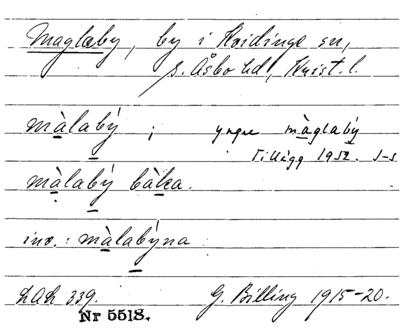 Maglaby, by i Kvidinge sn,
s. Åsbo hd, Krist. l.
màlabý ; yngre màglabý
Tillägg 1952. S-s
màlabý bàka.
inv.: màlabýna
LAL 339. G. Billing 1915-20.
Nr 5518.